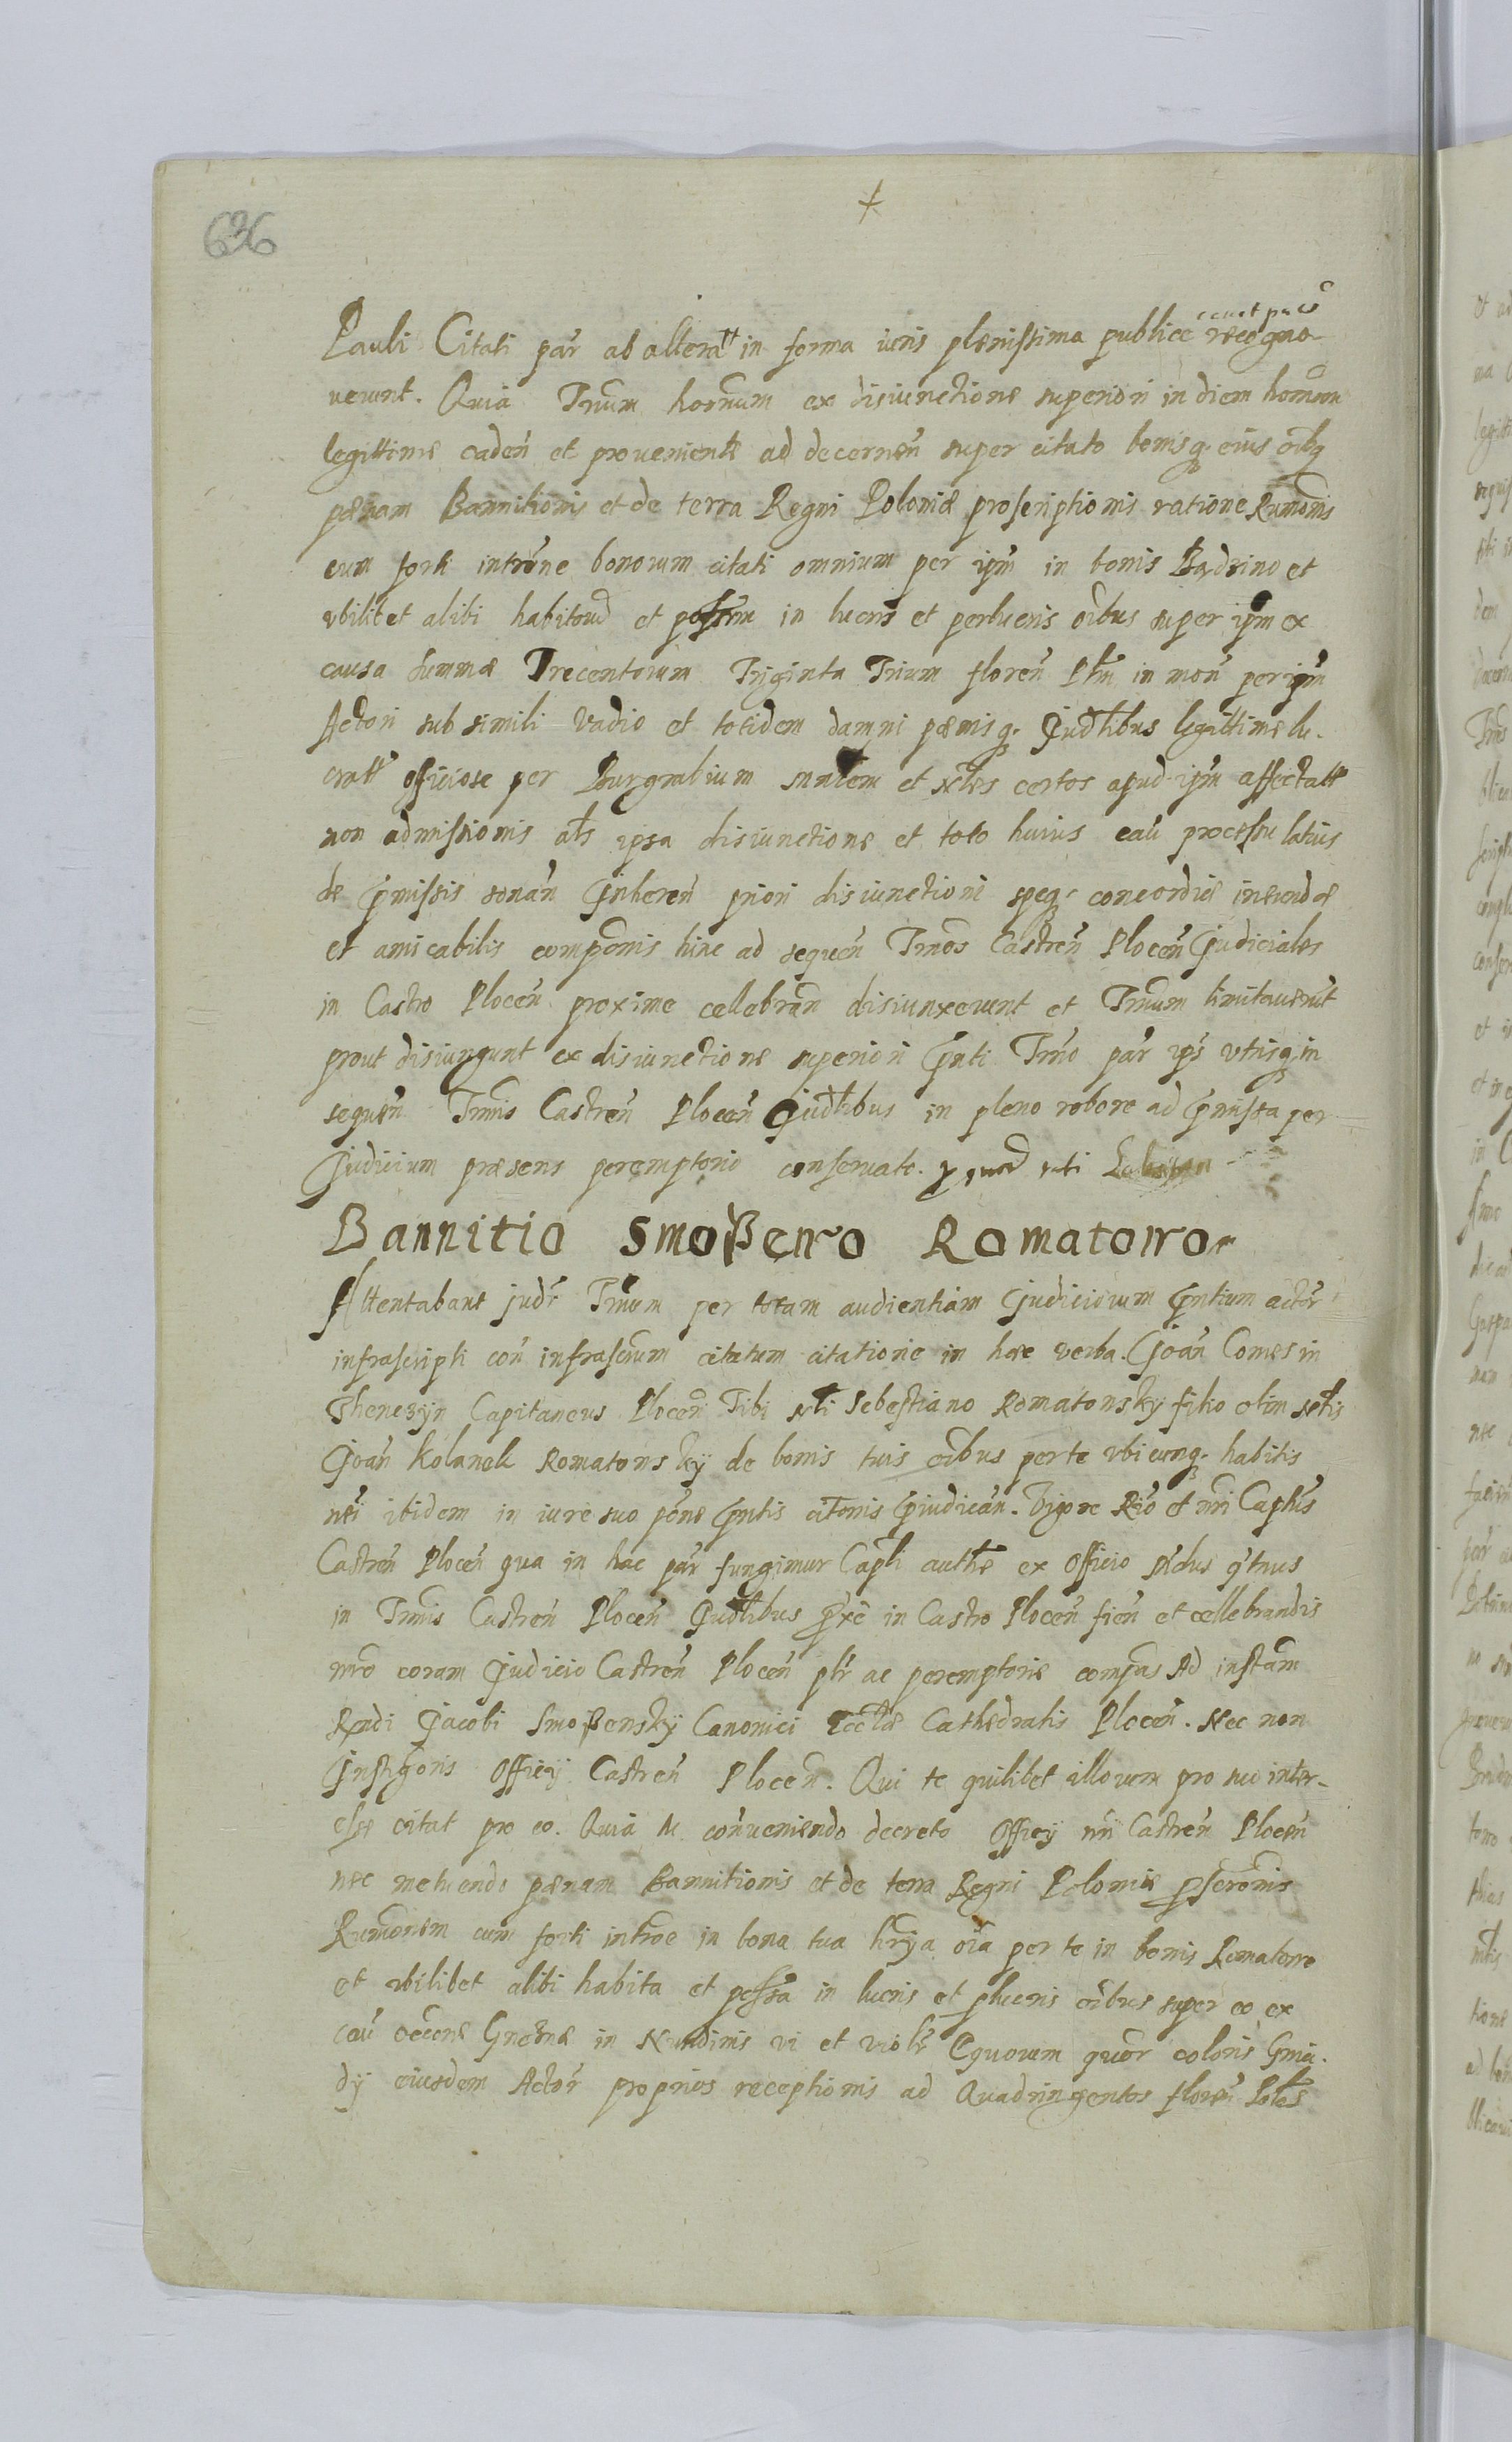 636
Pauli Citati par ab altera in forma iuris plenissima publice recogno-
uerunt. Quia Trnum hornum ex disiunctione superiori in diem hornam
legittime caden et prouenient ad decernen super citato bonisq. eius oibq
pænam Bannitionis et de terra Regni Poloniæ proscriptionis ratione Rumonis
cum forti introne bonorum citati omnium per ipm in bonis et
vbilibet alibi habitorum et possrum in lucris et perlucris oibus super ipm ex
causa summæ Trecentorum Triginta Trium floren Plm in mon per ipm
Actori sub simili vadio et totidem damni pænisq. Judlibus legittime lu-
cratt officiose per Burgrabium et Nles certos apud ipm affectate
non admissionis als ipsa disiunctione et toto huius cau processu latius
de pmissis sonan Inheren priori disiunctioni speq. concordiæ ineundæ
et amicabilis componis hinc ad sequen Trnos Castren Plocen Judiciales
in Castro Plocen proxime cellebran disiunxerunt et Trnum limitauerut
prout disiungunt ex disiunctione superiori pnti Trno par ips vtrisq. in
sequen Trnis Castren Plocen Judlibus in pleno robore ad pmissa per
Judicium præsens peremptorio conseruato.
Bannitio Smoßewo Romatowo
Attentabant judr Trnum per totam audientiam Judiciorum pntium actor
infrascripti con infrascrum citatum citatione in hæc verba. Joan Comes in
Thenczyn Capitaneus Plocen Tibi Nli Sebestiano Romatowsky filio olim Nlis
Joan Kolanek Romatowskÿ de bonis tuis oibus per te vbicunq. habitis
nri ibidem in iure suo pone pntis citonis piudican. Vigore Rio et nri Captus
Castren Plocen qua in hac par fungimur Capli authte ex officio
in Trnis Castren Plocen Judlibus pxe in Castro Plocen fien et cellebrandis
nro coram Judicio Castren Plocen plr ac peremptorie compas Ad instam
Rndi Jacobi Smoßenskÿ Canonici Ecclæ Cathedralis Plocen. Nec non
Instigoris Officÿ Castren Plocen. Qui te quilibet illorum pro suo inter-
esse citat pro eo. Quia tu conueniendo decreto Officÿ nri Castren Plocen
nec metuendo pænam Bannitionis et de terra Regni Poloniæ pscronis
Rumonem cum forti introe in bona tua hrÿa oia per te in bonis Romatowo
et vbilibet alibi habita et possa in lucris et plucris oibus super eo ex
cau in Nundinis vi et violr Equorum quor coloris Gnia-
dÿ eiusdem Actor proprios receptionis ad Quadringentos floren Poles